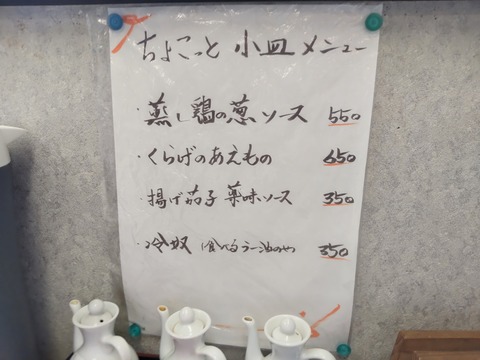 ちょこっと 小皿メニュー
・蒸し鶏の葱ソース 550
・くらげのあえもの 650
・揚げ茄子 薬味ソース 350
・冷奴 食べるラー油のや 350